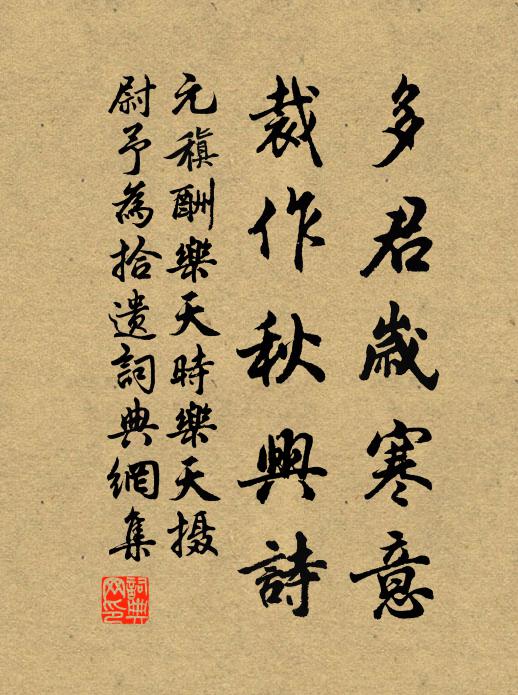 多君歲寒意
裁作秋興詩
元稹酬樂天時樂天摄
尉予為拾遺詞典網集
詞典网印